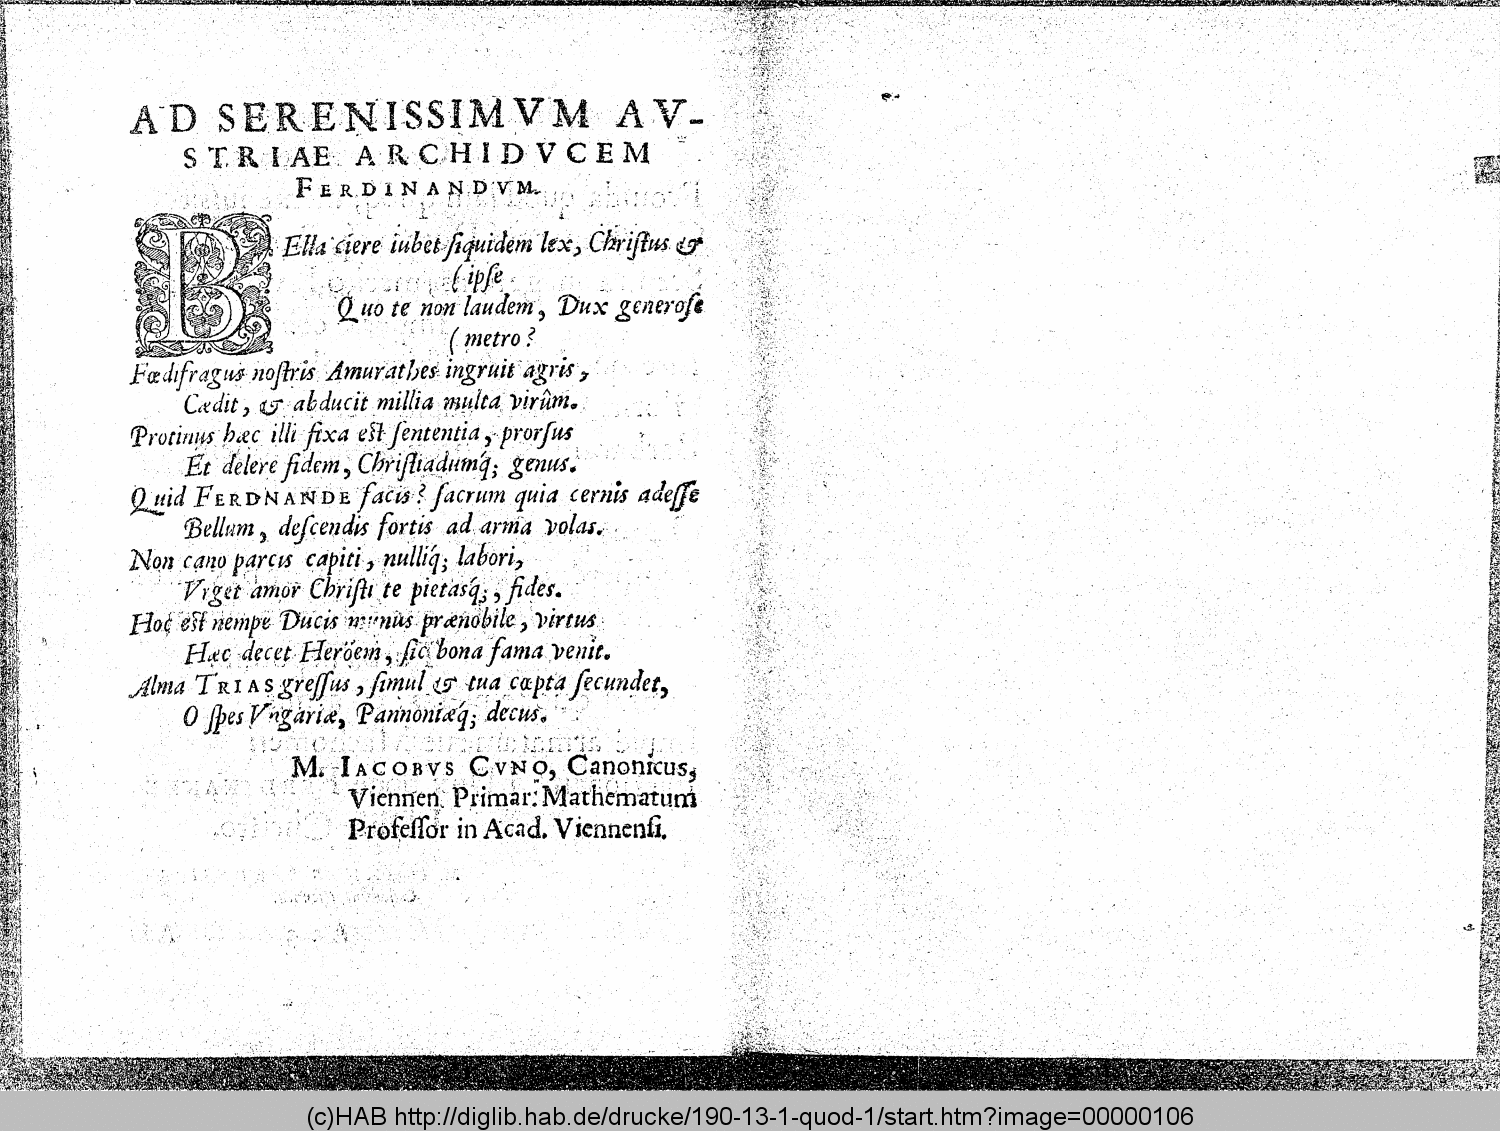 AD SERENISSIMVM AV-
STRIAE ARCHIDVCEM
FERDINANDVM.
BElla ciere iubet siquidem lex, Christus &
(ipse
Quo te non laudem, Dux generose
(metro?
Fœdifragus nostris Amurathes ingruit agris,
Cædit, & abducit millia multa virûm.
Protinus hæc illi fixa est sententia, prorsus
Et delere fidem, Christiadumq́; genus.
Quid FERDNANDE facis? sacrum quia cernis adesse
Bellum, descendis fortis ad arma volas.
Non cano parcis capiti, nulliq́; labori,
Vrget amor Christi te pietasq́;, fides.
Hoc est nempe Ducis munus prænobile, virtus
Hæc decet Heröem, sic bona fama venit.
Alma TRIAS gressus, simul & tua cœpta secundet,
O spes Vngariæ, Pannoniæq́; decus.
M. IACOBVS CVNO, Canonicus,
Viennen. Primar: Mathematum
Professor in Acad. Viennensi.
(c)HAB http://diglib.hab.de/drucke/190-13-1-quod-1/start.htm?image=00000106